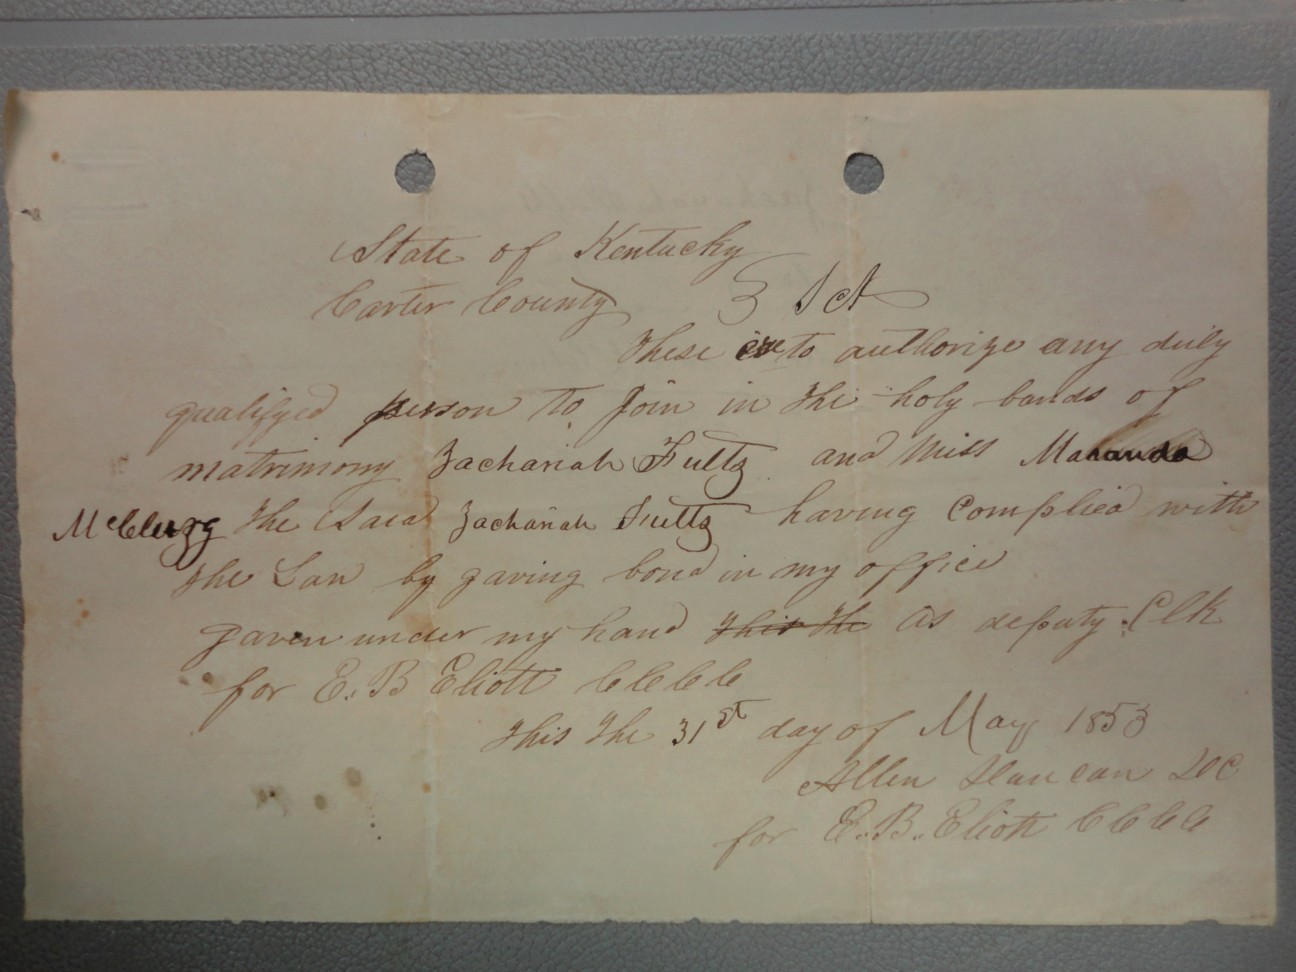 State of Kentucky
Carter County } Sct
These is to authorize any duly
qualifyed person to join in the holy bands of
matrimony Zachariah Fultz and Miss Mananda
McClurg the Said Zachariah Fultz having Complied with
the Law by gaving bond in my office
gaven under my hand this the as deputy Clk
for E. B Eliott CCCC
this the 31st day of May 1853
Allen Duncan DC
for E. B. Eliott CCCC